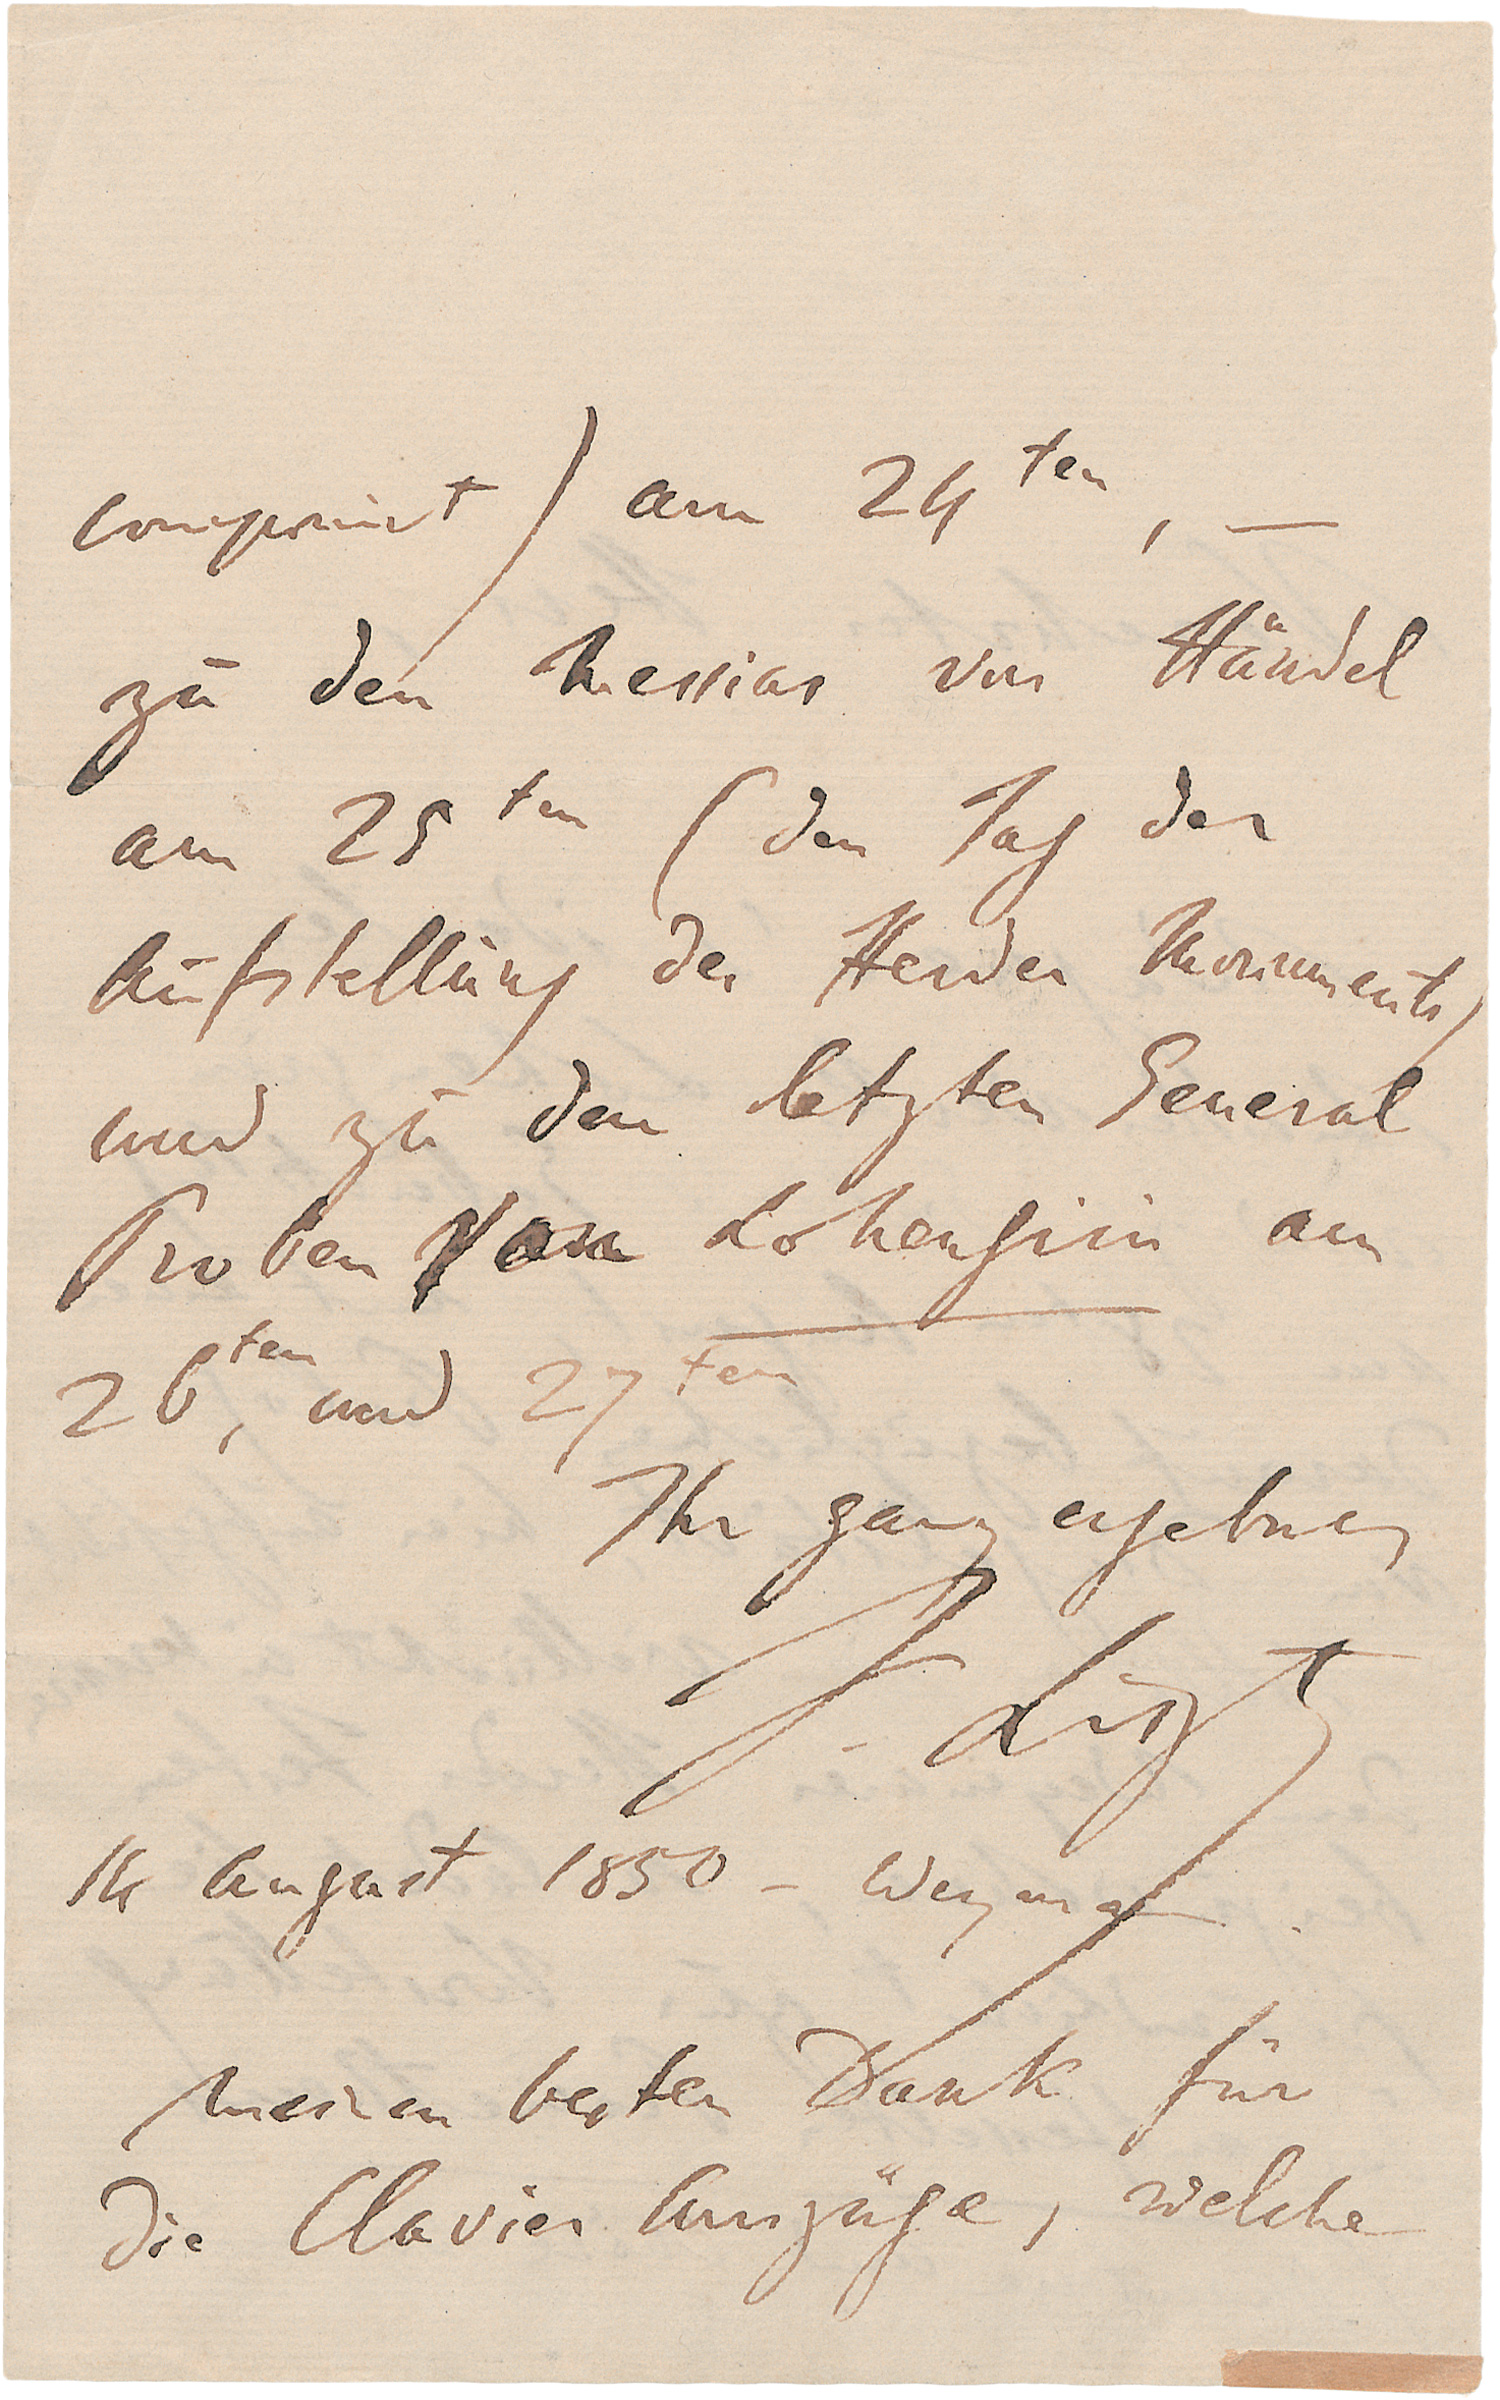 componirt) am 24ten, —
zu den Messias von Händel
am 25ten (den Tag der
Aufstellung des Herder Monuments)
und zu den letzten General
Proben von Lohengrin am
26ten, und 27ten
Ihr ganz ergebner
F. Liszt
14 August 1850 – Weymar.
Meinen besten Dank für
die Clavier Auszüge, welche